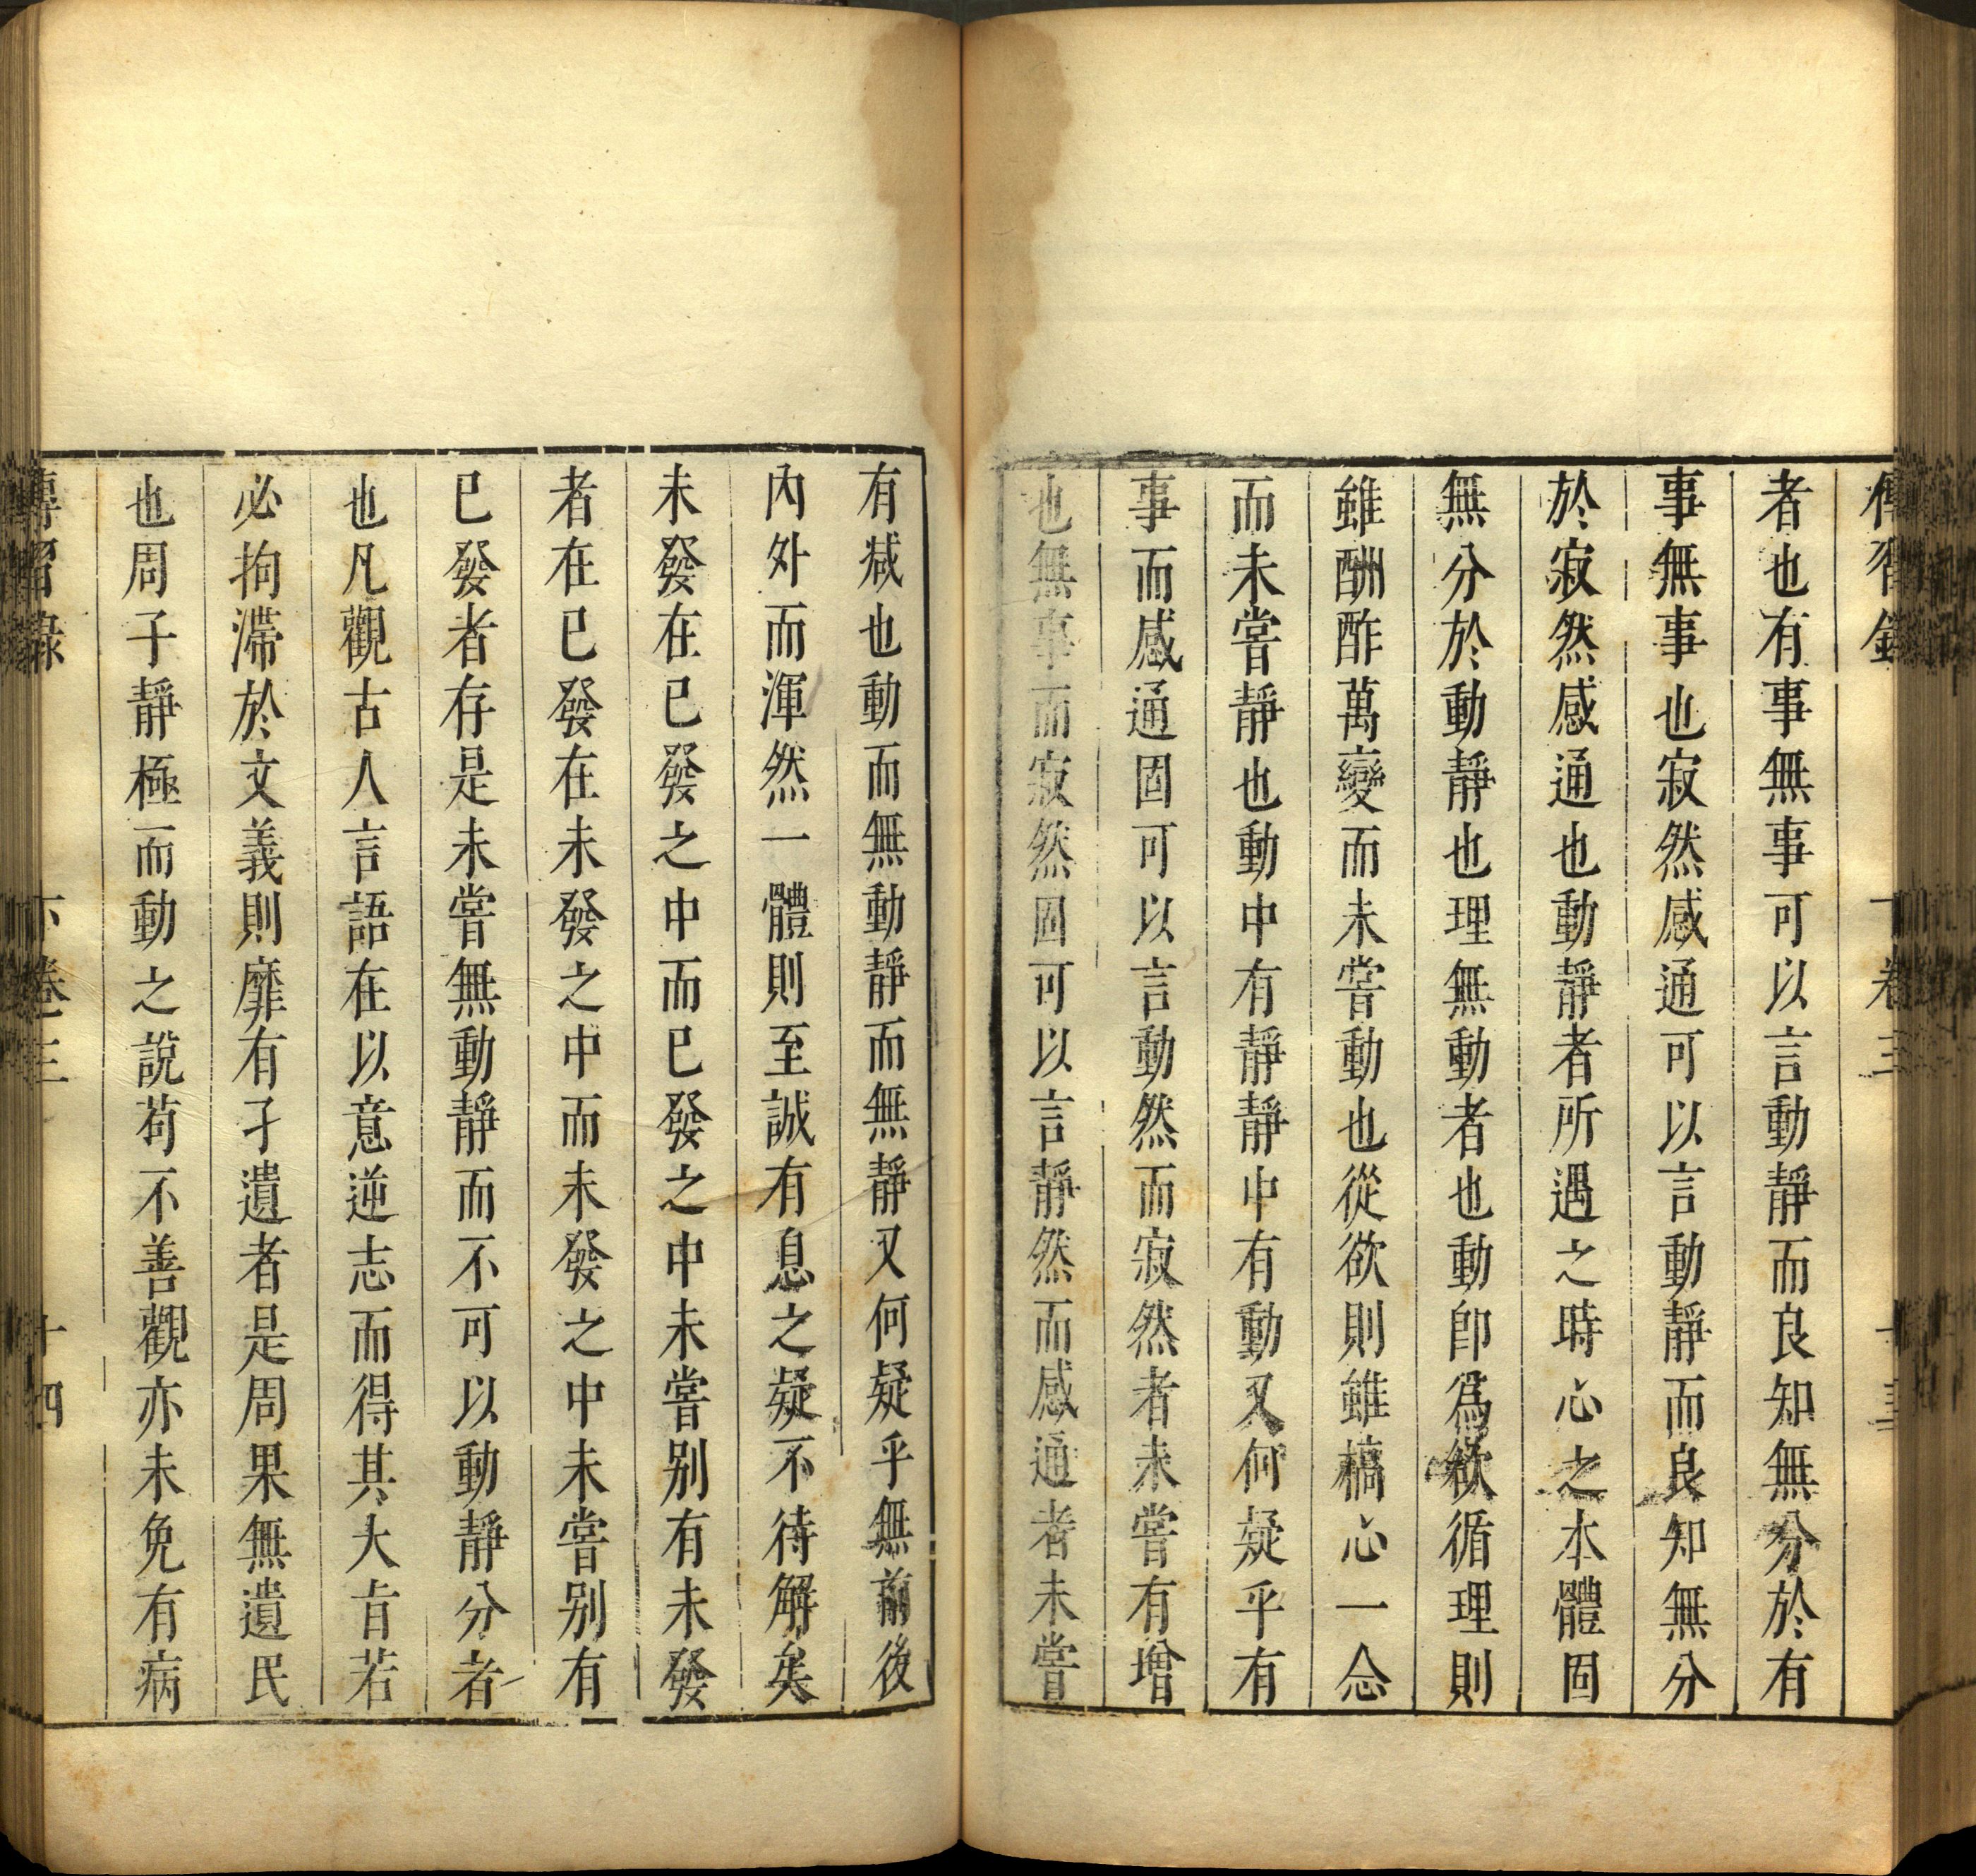 傳習錄 下卷三 十三
者也有事無事可以言動靜而良知無分於有
事無事也寂然感通可以言動靜而良知無分
於寂然感通也動靜者所遇之時心之本體固
無分於動靜也理無動者也動卽爲欲循理則
雖酬酢萬變而未嘗動也從欲則雖槁心一念
而未嘗靜也動中有靜靜中有動又何疑乎有
事而感通固可以言動然而寂然者未嘗有增
也無事而寂然固可以言靜然而感通者未嘗
有减也動而無動靜而無靜又何疑乎無前後
內外而渾然一體則至誠有息之疑不待解矣
未發在已發之中而已發之中未嘗别有未發
者在已發在未發之中而未發之中未嘗别有
已發者存是未嘗無動靜而不可以動靜分者
也凡觀古人言語在以意逆志而得其大旨若
必拘滯於文義則靡有孑遺者是周果無遺民
也周子靜極而動之說苟不善觀亦未免有病
傳習錄 下卷三 十四